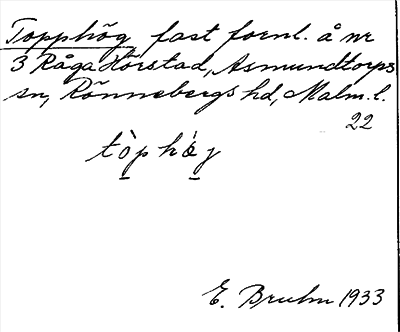 Topphög fast fornl. å nr
3 Råga Hörstad, Asmundtorps
sn, Rönnebergs hd, Malm. l.
22
tò̠p hǿ̠g
E. Bruhn 1933